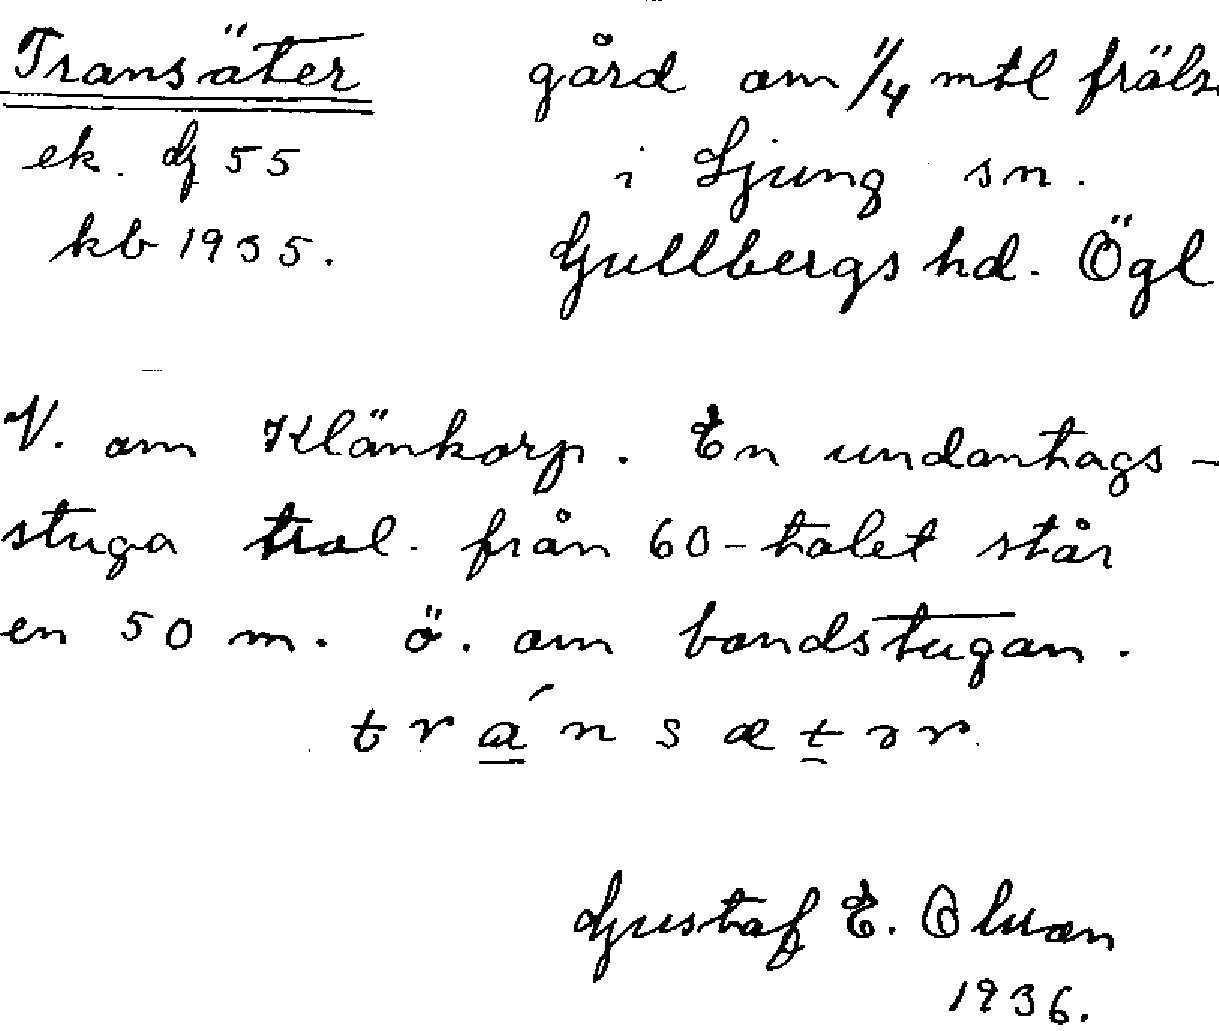 Transäter
ek. G 55
kb 1935.
gård om 1/4 mtl fräls
i Ljung sn.
Gullbergs hd. Ögl
V. om Klänkorp. En undantags-
stuga trol. från 60-talet står
en 50 m. ö. om bondstugan.
tránsætər
Gustaf E. Olsson
1936.